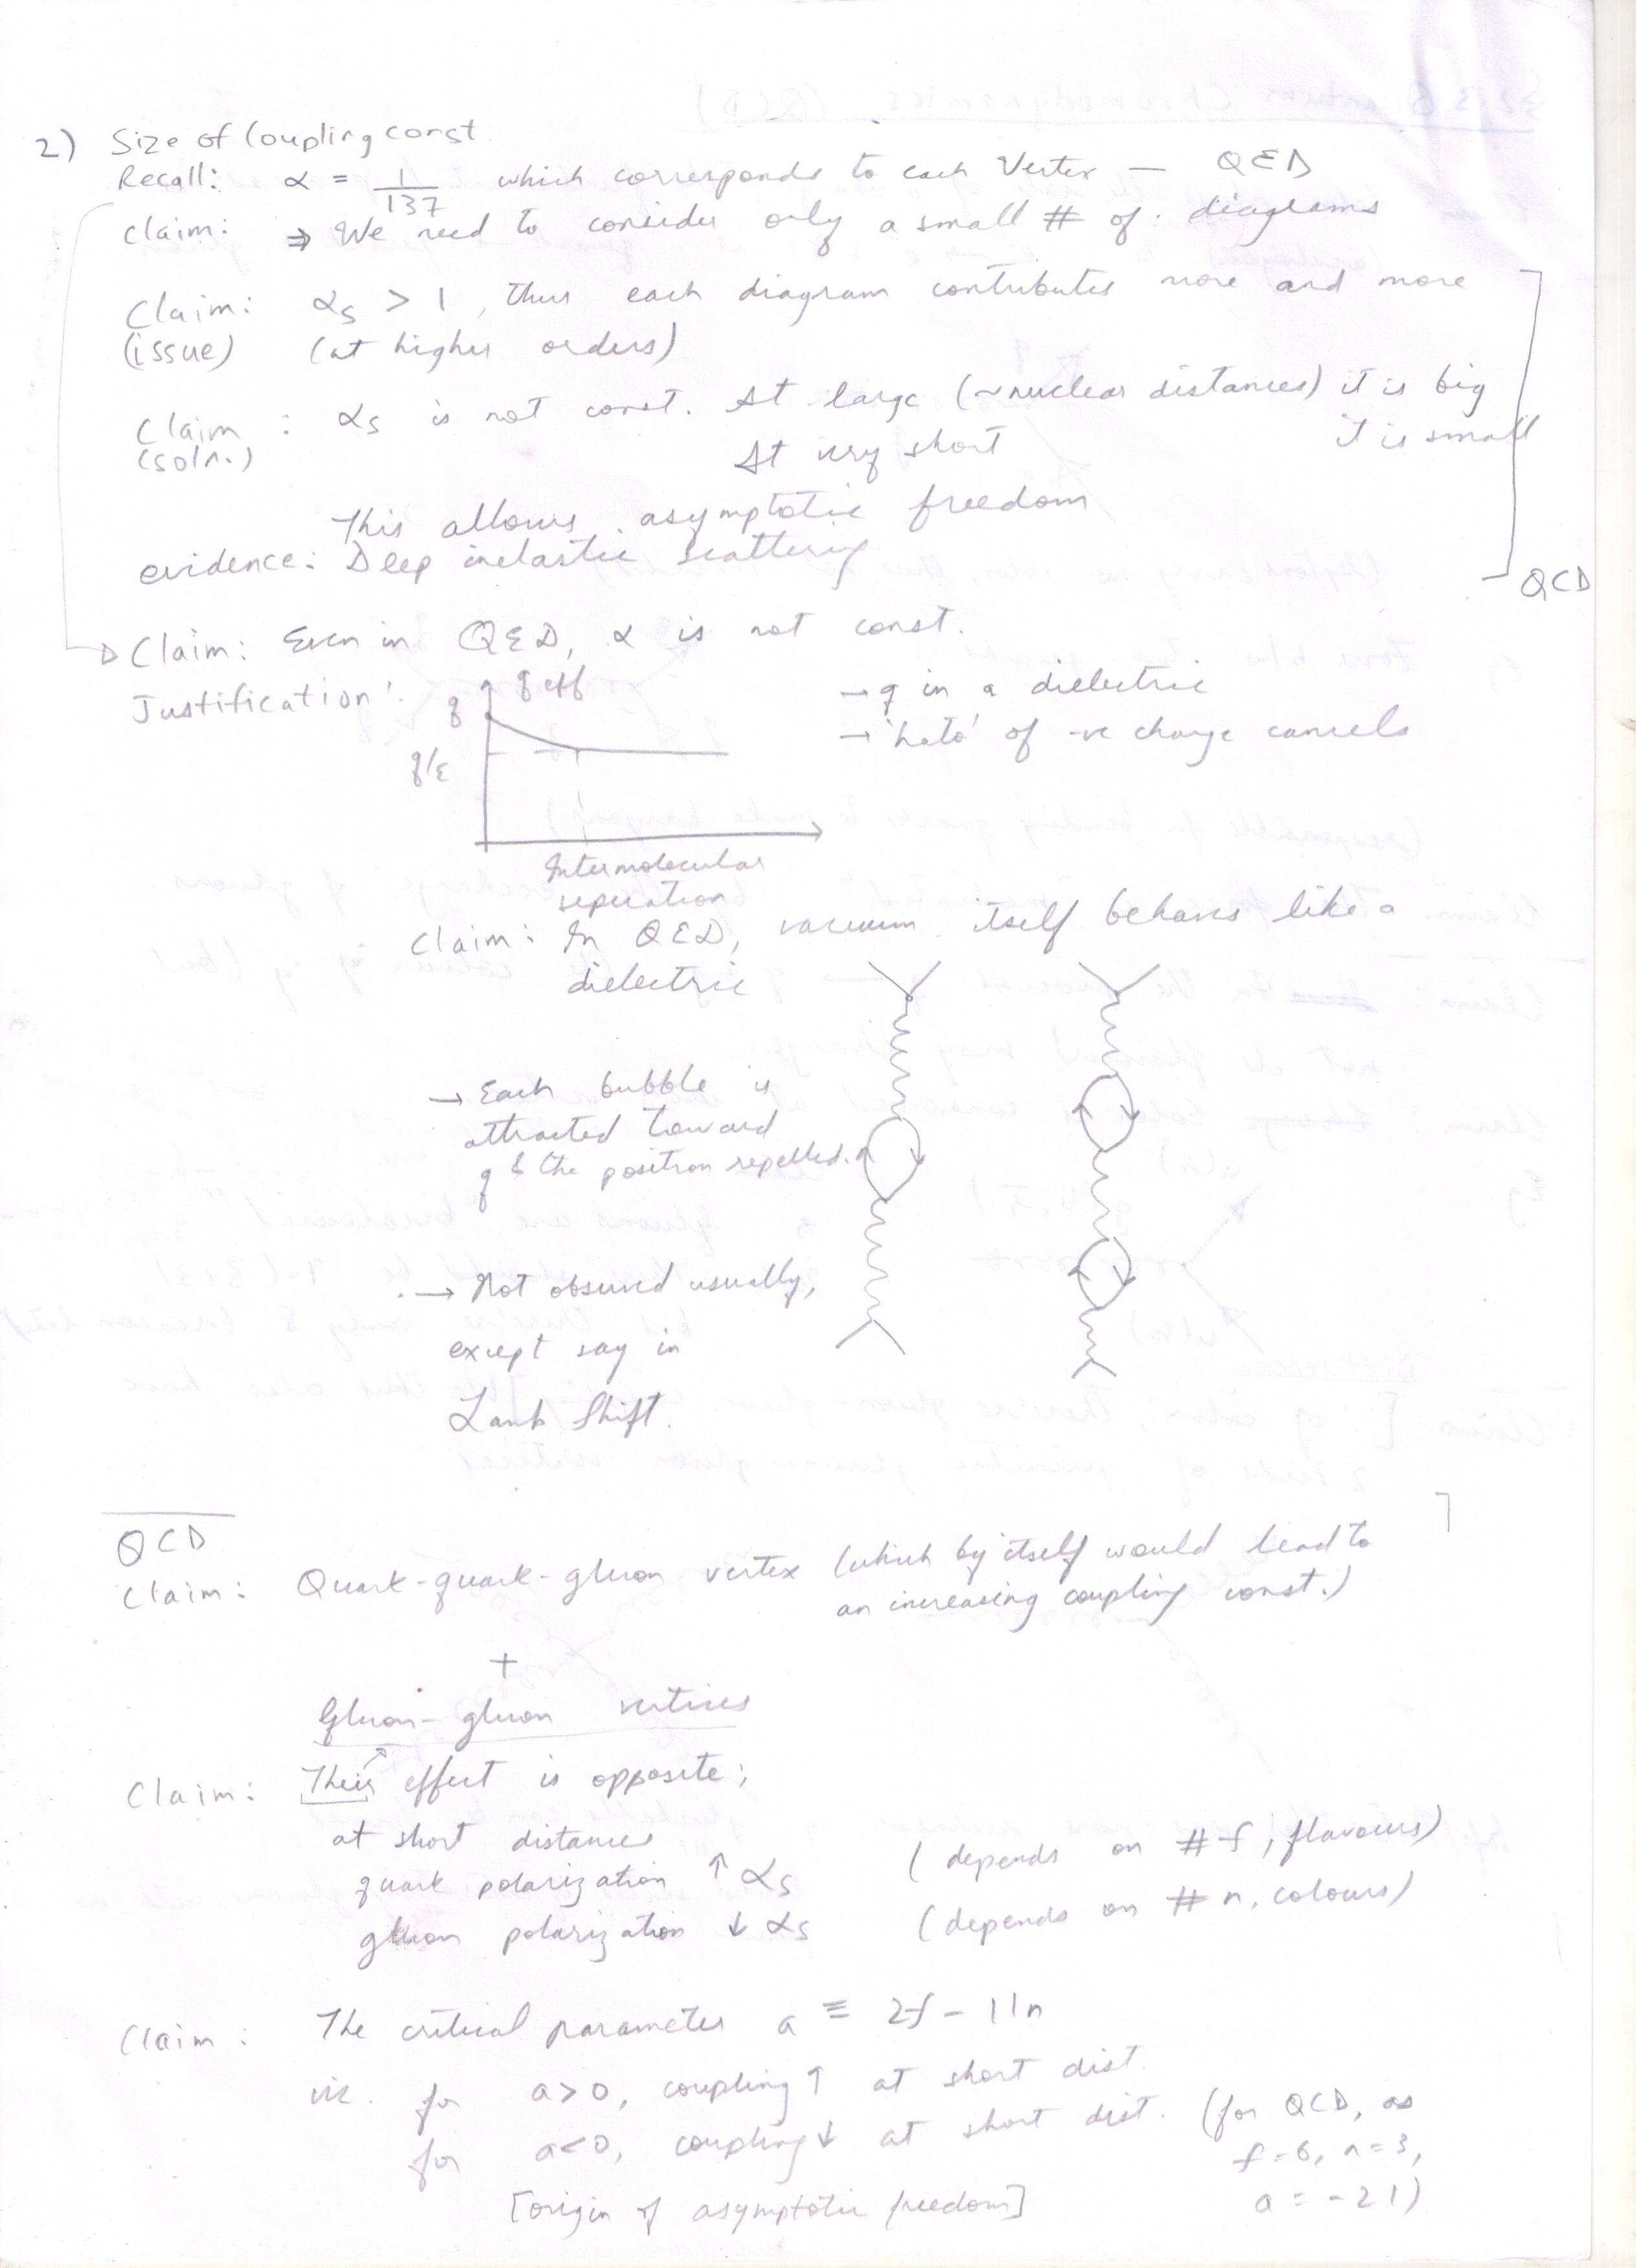 2) Size of Coupling const.
Recall: α = 1/137 which corresponds to each Vertex — QED
Claim: ⇒ We need to consider only a small # of diagrams
Claim: αs > 1, thus each diagram contributes more and more
(issue) (at higher orders)
Claim : αs is not const. At large (~nuclear distances) it is big
(soln.) At very short it is small
This allows asymptotic freedom
evidence: Deep inelastic scattering
QCD
Claim: Even in QED, α is not const.
Justification:
q qeff
q/ε
Intermolecular
seperation
→ q in a dielectric
→ 'halo' of -ve charge cancels
Claim: In QED, vacuum itself behaves like a
dielectric
→ Each bubble is
attracted toward
q & the positron repelled.
→ Not observed usually,
except say in
Lamb Shift.
QCD
Claim: Quark-quark-gluon vertex (which by itself would lead to
an increasing coupling const.)
+
Gluon-gluon vertices
Claim: Their effect is opposite;
at short distances
quark polarization ↑ αs (depends on #f, flavours)
gluon polarization ↓ αs (depends on #n, colours)
Claim: The critical parameter a ≡ 2f - 11n
viz. for a>0, coupling ↑ at short dist.
for a<0, coupling ↓ at short dist. (for QCD, as
f=6, n=3,
a = -21)
[origin of asymptotic freedom]